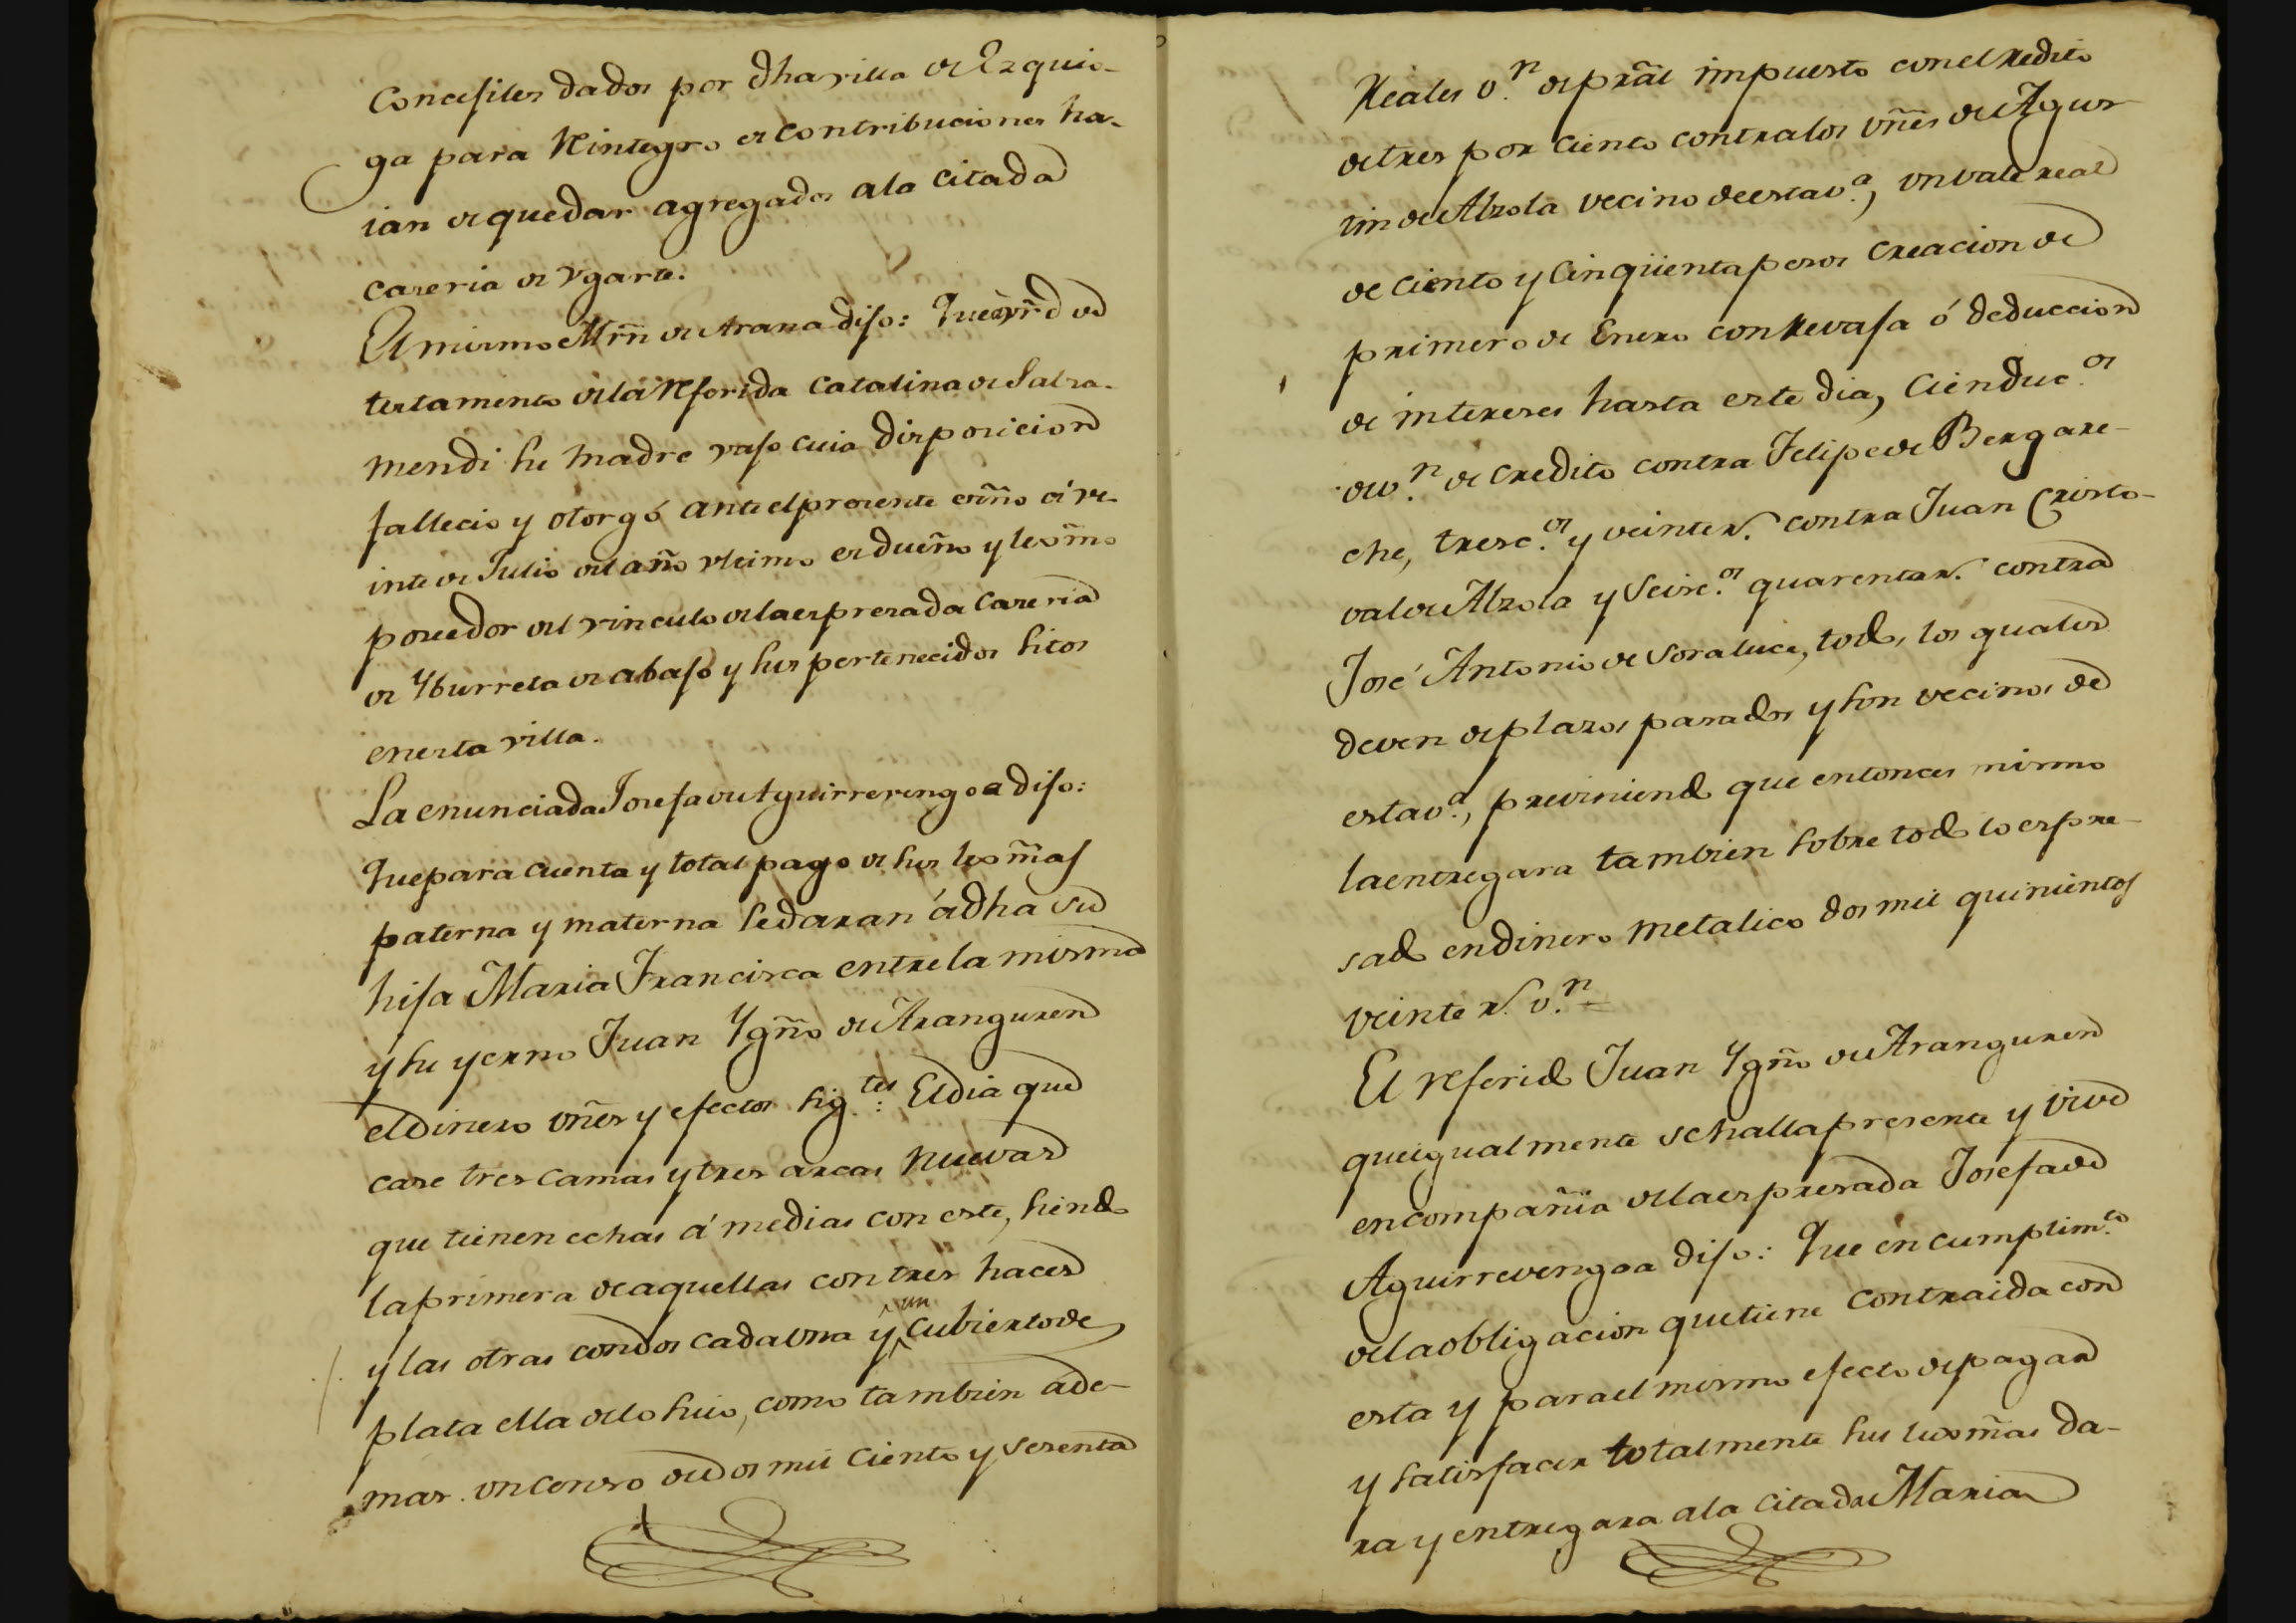 Concesiles dados por dha villa de Ezquio-
ga para Reintegro de contribuciones ha-
ian de quedar agregados ala citada
caseria de Ygarte.
El mismo Mrñ de Arana dijo: Que
testamento dela Referida Catalina de Salsa-
mendi su madre vajo cuia disposicion
fallecio y otorgó ante el presente esño á ve-
inte de Julio del año vltimo es dueño y lexmo
poseedor del vinculo dela espresada Caseria
de Yburreta de abajo y sus pertenecidos sitos
en esta villa.
La enunciada Josefa de Aguirrevengoa dijo:
Que para cuenta y total pago de sus lexmas
paterna y materna se daran á dha su
hija Maria Francisca entre la misma
y su yerno Juan Ygño de Aranguren
el dinero vñes y efectos sigtes: El dia que
case tres camas y tres arcas nuevas
que tienen echas á medias con este, siendo
la primera de aquellas con tres haces
y las otras con dos cada vna y un cubierto de
plata ella delo suio, como tambien ade-
mas vn censo de dos mil ciento y sesenta
Reales vn de pral impuesto con el redito
de tres por ciento contra los vñes de Agus-
tin de Alzola vecino de esta va, vn vale real
de ciento y cinqüenta pesos creacion de
primero de Enero con Revaja ó deduccion
de intereses hasta este dia, Cien ducos
de vn de credito contra Felipe de Bergare-
che, trescos y veinte rs. contra Juan Cristo-
val de Alzola y Seiscos quarenta rs. contra
José Antonio de Soraluce, todos los quales
deven de plazos pasados y son vecinos de
esta va, previniendo que entonces mismo
la entregara tambien sobre todo lo espre-
sado en dinero metalico dos mil quinientos
veinte rs. vn =
El referido Juan Ygño de Aranguren
que igualmente se halla presente y vive
en compañia dela espresada Josefa de
Aguirrevengoa dijo: Que en cumplimto
dela obligacion que tiene contraida con
esta y para el mismo efecto de pagar
y satisfacer totalmente sus lexmas da-
ra y entregara ala citada Maria